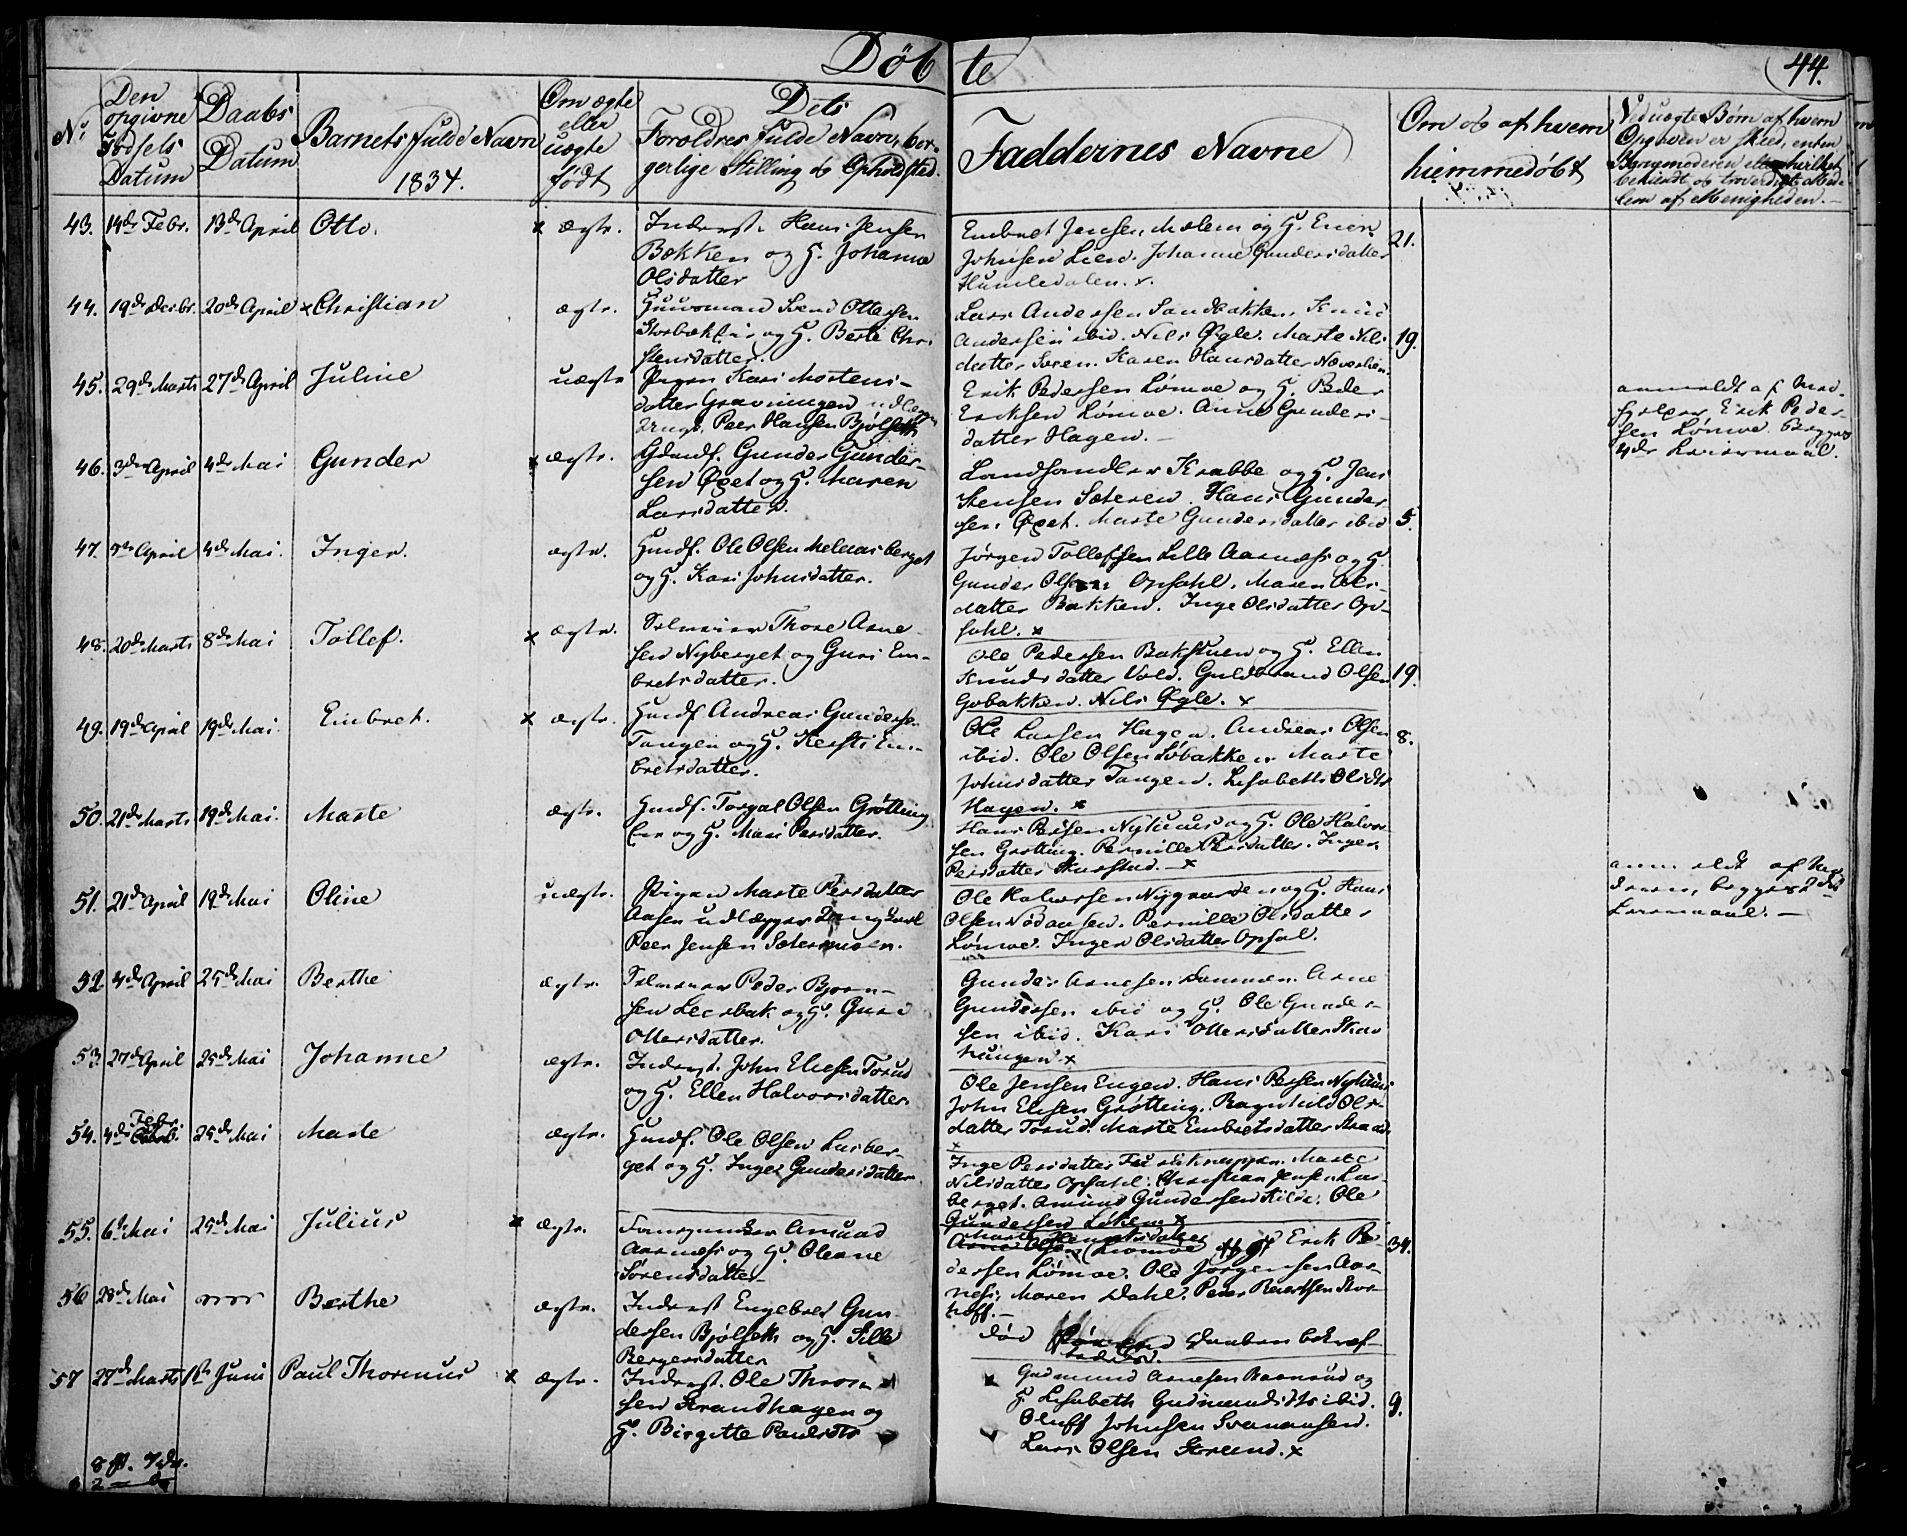 Døbte
44.
No
Den opgivne Fødsels Datum
Daabs Datum
Barnets fulde Navn
1834.
Om ægte eller uægte født
Dets Forældres fulde Navn, borgerlige Stilling og Opholdsted.
Faddernes Navne
Om og af hvem hiemmedøbt
Ved uægte Børn af hvem Opgaven er skeed, enten
43. 14de Febr. 13de April Otto. x ægte. Inderst. Hans Jensen
Bakken og H. Johanne
Olsdatter
Embret Jensen Moelem og H. Einer
Johnsen Lien. Johanne Gundersdatter
Humledalen. x.
21.
44. 19de Decbr. 20de April x Christian ægte. Huusmand Svend Ottersen
og H. Berte Chri
stensdatter.
Lars Andersen Sandbakken. Knud
Andersen ibid. Nils Øgle. Marte Nils
datter Soren. Karen Hansdatter
19.
45. 29de Marts 27de April Juline uægte Pigen Kari Mortens-
datter Gravningen udlægger
Peer Hansen Bjølseth
Erik Pedersen Lømoe og H. Peder
Eriksen Lømoe. Anne Gunders-
datter Hagen. -
anmeldt af
Erik Peder-
sen Lømoe. Begges
4de Leiermaal.
46. 3de April 4de Mai Gunder x ægte. Gaardf. Gunder Gunder-
sen Øget og H. Maren
Larsdatter.
Landhandler Krabbe og H. Jens
Stensen Sæteren. Hans Gunder
sen Øget. Marte Gundersdatter ibid
5.
47. April 4de Mai. Inger. ægte. Huusf. Ole Olsen Melaasberget
og H. Kari Johnsdatter.
Jørgen Tollefsen Lille Aarnæss og H.
Gunder Olsen Opsahl. Maren Ols-
datter Bakken. Inge Olsdatter Op-
sahl. x
48. 20de Marts 8de Mai Tollef. x ægte. Selveier Thore Arne-
sen Nyberget og Guri Em-
bretsdatter.
Ole Pedersen Bakstuen og H. Ellen
Knudsdatter Vold. Guldbrand Olsen
Gobakken. Nils Øgle. x
19.
49. 19de April 19de Mai. Embret. x ægte. Huusf Andreas Gundersen
Tangen og H. Kersti Em-
bretsdatter.
Ole Larsen Hagen. Andreas Olsen
ibid. Ole Olsen Løbakken Marte
Johnsdatter Tangen. Lisabeth Olsdtr
Hagen. x
8.
50. 21de Marts 19de Mai. Marte ægte. Huusf. Torgal Olsen Grøtting
Eie og H. Mari Persdatter.
Hans Persen Nyhuus og H. Ole Halvor
sen Grøtting. Pernille Persdatter. Inger
Persdatter Skurstad. - x
51. 21de April 19de Mai Oline uægte. Pigen Marte Persdatter
Aasen udlægger Ungkarl
Peer Jensen Sætermoen.
Ole Halvorsen Nygaarden og H. Hans
Olsen Nødaasen. Pernille Olsdatter
Lømoe. Inger Olsdatter Opsal.
anmeldt af
begges 2det
Leiermaal. -
52 4de April 25de Mai Berthe ægte. Selveier Peder Bjørn-
sen Leerbak og H. Guri
Ottersdatter.
Gunder Arnesen Dammen. Arne
Gundersen ibid og H. Ole Gunder-
sen ibid. Kari Ottersdatter Skav
hungen x
53 27de April 25de Mai Johanne ægte. Inderst. John Eliesen Torud
og H. Ellen Halvorsdatter.
Ole Jensen Engen. Hans Persen Nyhuus
John Elisen Grøtting. Ragnhild Ols-
datter Torud. Marte Embretsdatter
54. 4de Febr. 25de Mai Marte ægte. Huusf. Ole Olsen Lusber-
get og H. Inger Gundersdatter
x
Inge Persdatter Marte
Nilsdatter Opsahl. Christian Jensen Lus-
berget. Amund Gundersen Kilde. Ole
Gundersen Løken x
55. 6te Mai 25de Mai Julius x ægte. Amund
Aarnæss og H. Oleane
Sørensdatter
Lømoe Erik Pe-
dersen Lømoe. Ole Jørgensen Aar-
næss. Maren Dahl. Peder Reiertsen Stor-
hoff. -
34.
56 28de Mai Berthe ægte. Inderst Engebret Gun
dersen Bjølseth og H. Sille
Bergersdatter
død Daaben bekræf-
57 27de Marts 1ste Juni Paul Thorinus x ægte. Inderst. Ole Thor
sen Strandhagen og
H. Birgitte Paulsdtr
Gudmund Arnesen Raanaud og
H Lisabeth Gudmundsdtr ibid.
Oluff Johnsen Svenaasen.
Lars Olsen Storlund. x
9.